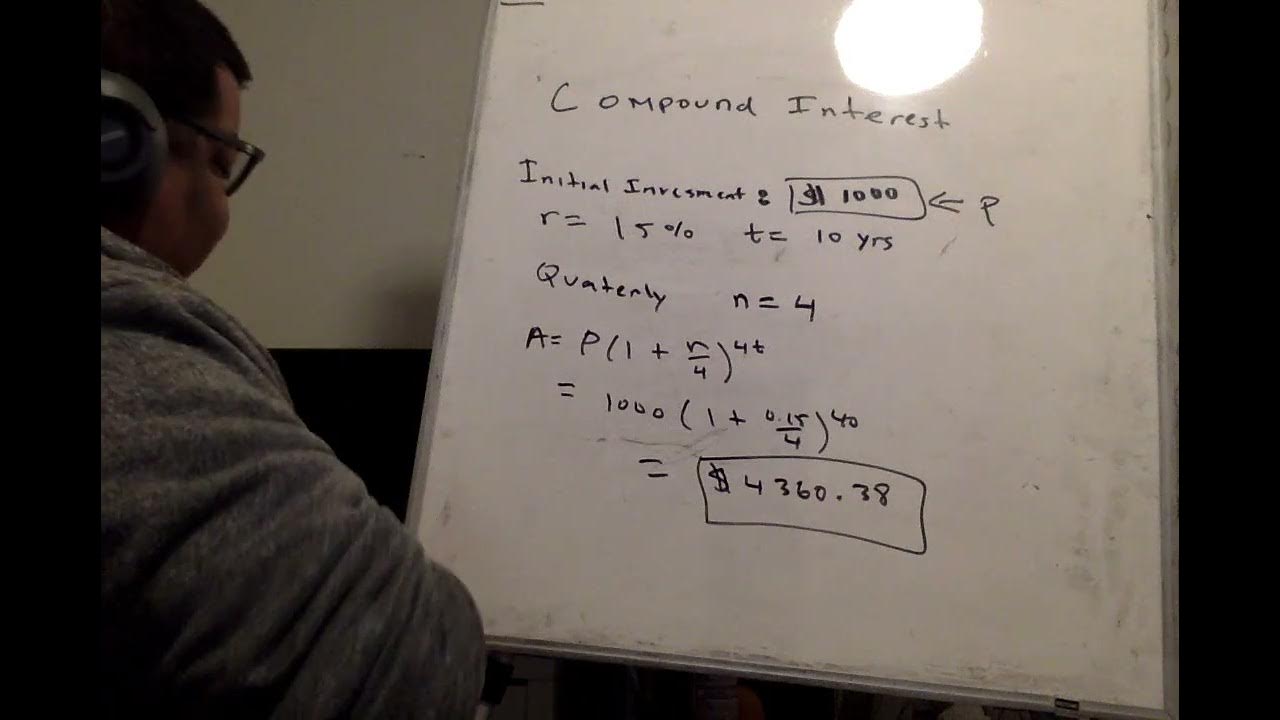 Compound Interest
Initial Invesment: $1000 ⇐ P
r= 15% t= 10 yrs
Quaterly n=4
A= P(1 + r/4)^4t
= 1000 (1 + 0.15/4)^40
= $4360.38